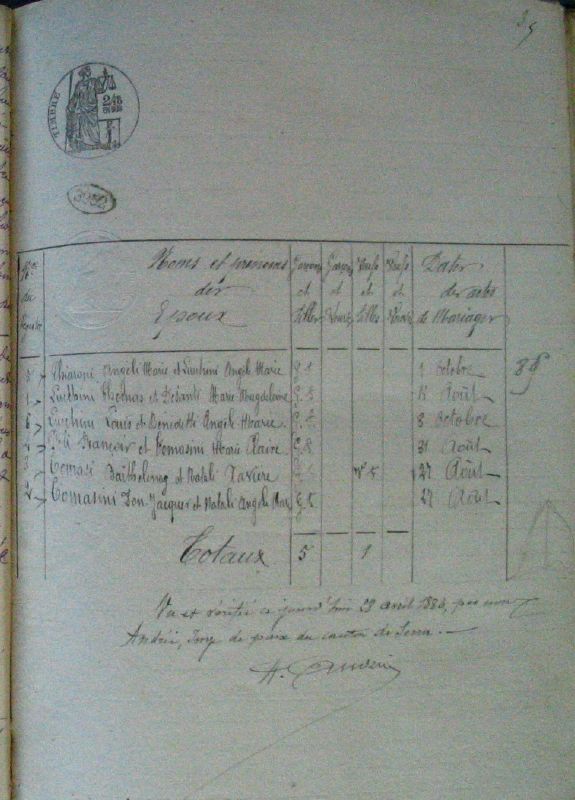 35
TIMBRE
Nos du Registre
Noms et prénoms des Epoux
Garçons et Filles
Garçons et Veuves
Veufs et Filles
Veufs et Veuves
Dates des actes de Mariages
Angeli Marie et Luchini Angèle Marie G. F. 1 Octobre
1 Thomas et Marie Magdeleine G. F. Août
6 Luchini Louis et Benedetti Angèle Marie G. F. 8 Octobre
4 François et Tomasini Marie Claire G. F. 31 Août
3 Tomasi Barthélemy et Natali Xavière V. F. 27 Août
2 Tomasini Don Jacques et Natali Angèle G. F. 27 Août
Totaux 5 1
Vu et vérifié ce jourd'hui avril par nous
Andrei, Juge de paix du canton de Serra.